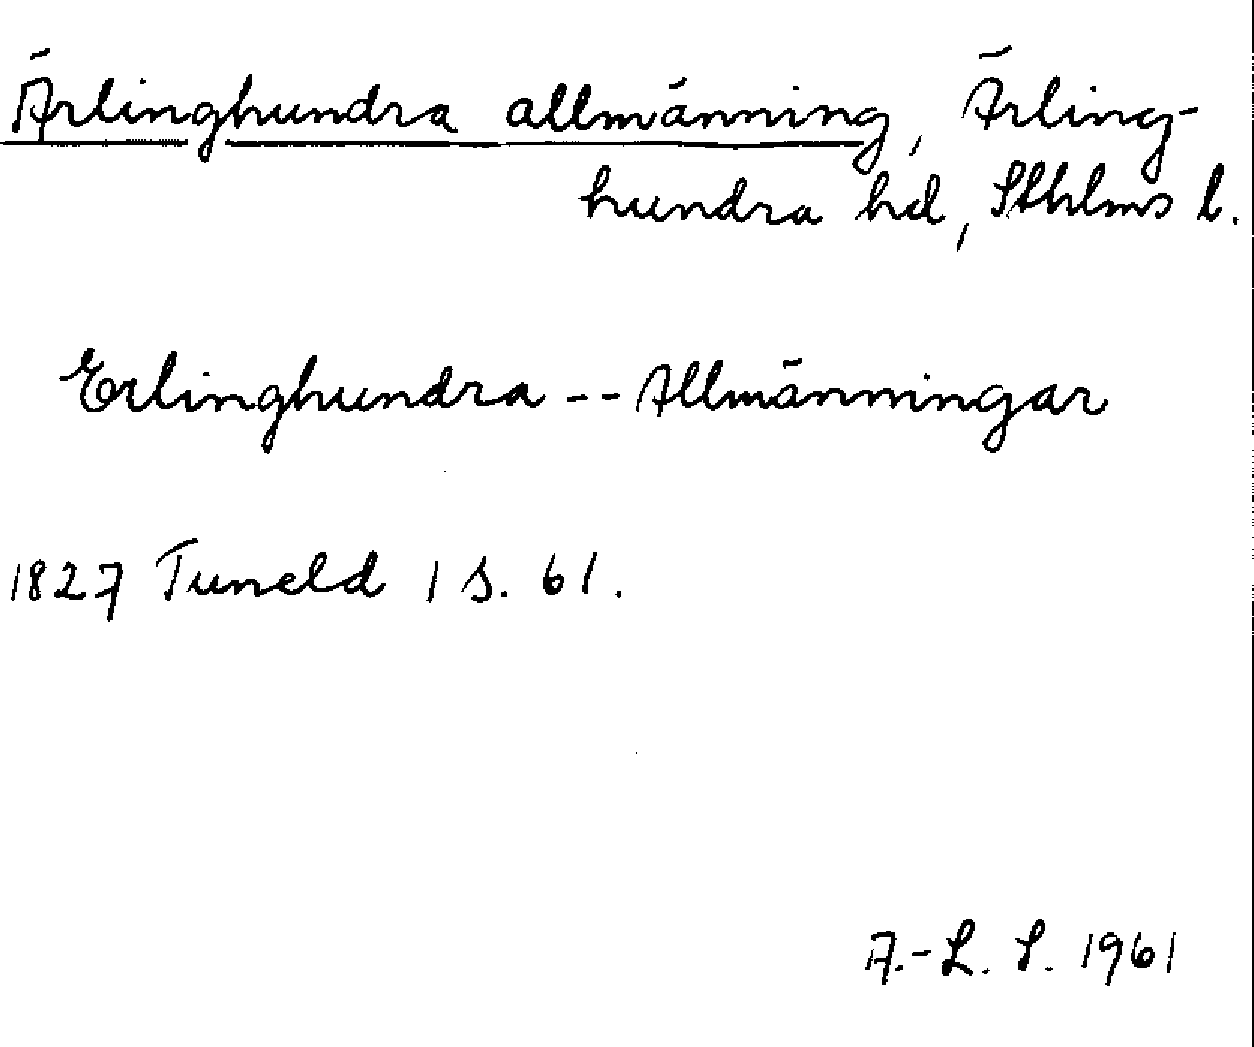 Ärlinghundra allmänning, Ärling-
hundra hd, Sthlms l.
Erlinghundra -- Allmänningar
1827 Tuneld 1 s. 61.
A.-L. S. 1961